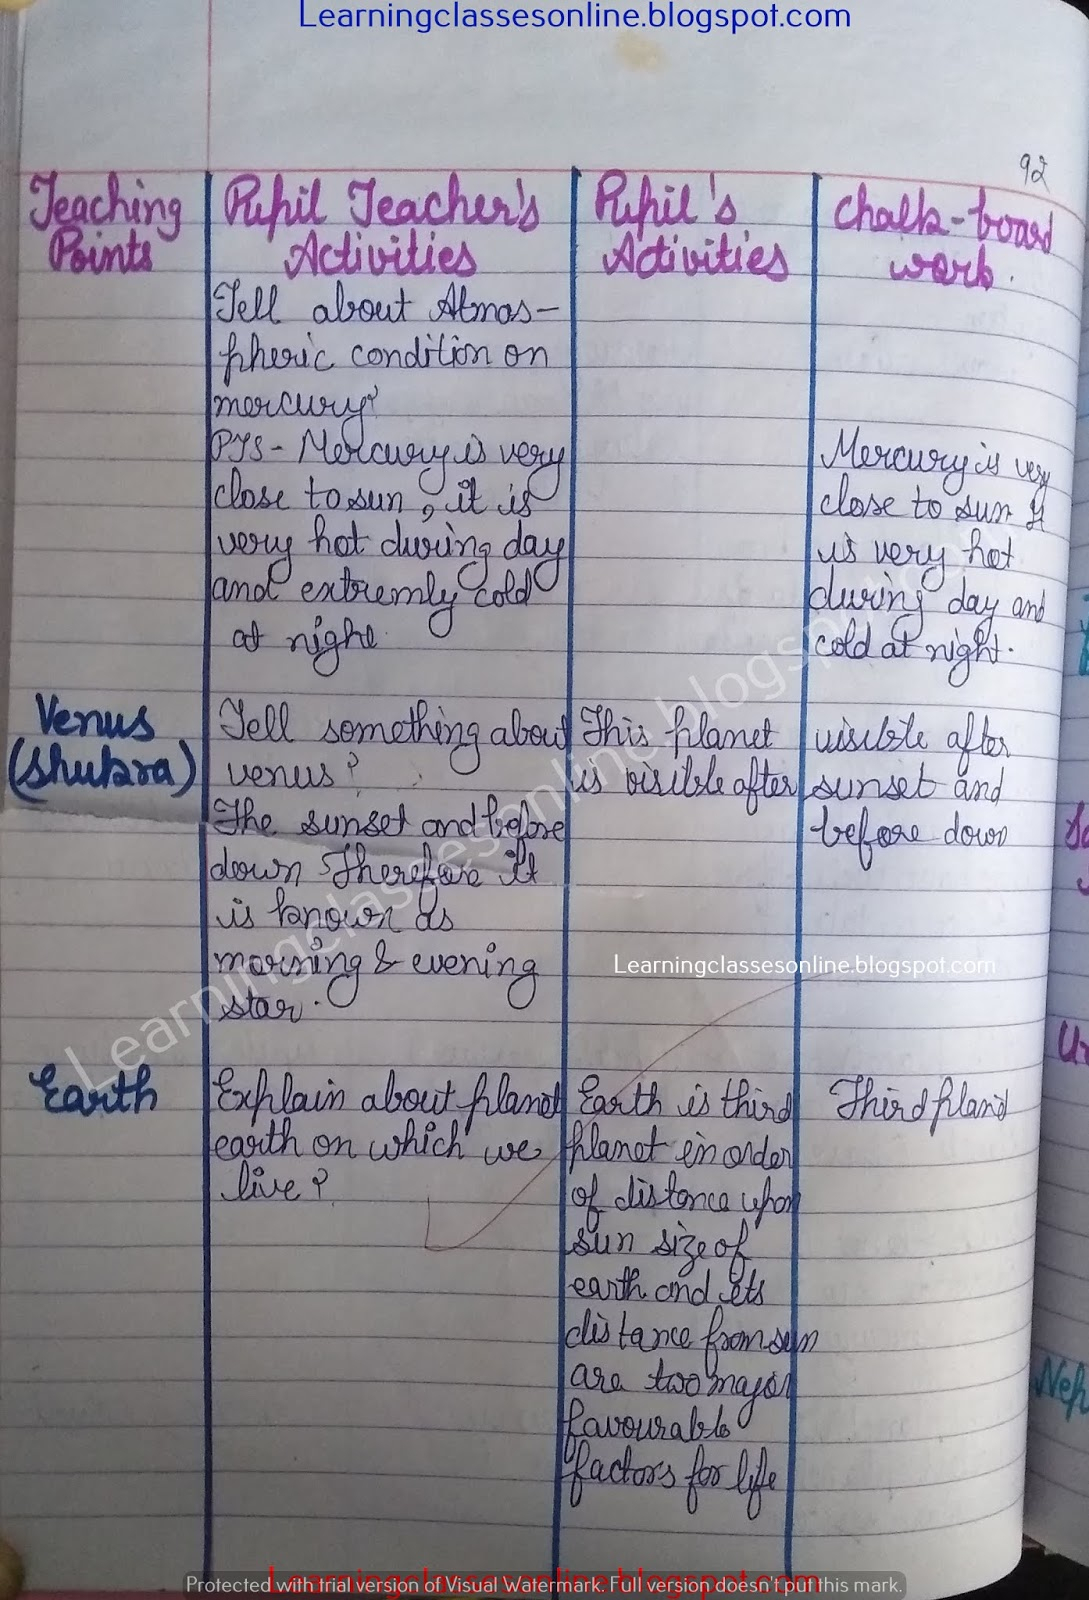 Learningclassesonline.blogspot.com
92
Teaching
Points
Pupil Teacher's
Activities
Pupil's
Activities
Chalk-board
work.
Tell about Atmos-
pheric condition on
mercury?
PTS- Mercury is very
close to sun, it is
very hot during day
and extremly cold
at night
Mercury is very
close to sun It
is very hot
during day and
cold at night.
Venus
(shukra)
Tell something about
venus?
The sunset and before
down Therefore it
is known as
morning & evening
star.
This planet
is visible after
visible after
sunset and
before down
Learningclassesonline.blogspot.com
Learningclassesonline.blogspot.com
Earth
Explain about planet
earth on which we
live?
Earth is third
planet in order
of distance upon
sun size of
earth and its
distance from sun
are two major
favourable
factors for life
Third
Nep
Learningclassesonline.blogspot.com
Protected with trial version of Visual Watermark. Full version doesn't put this mark.